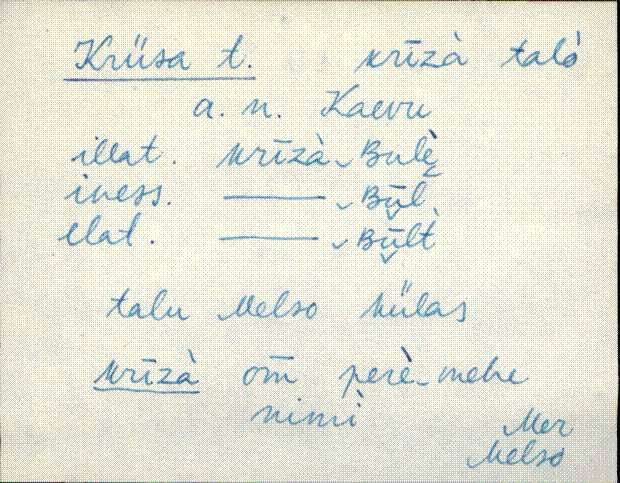 Kriisa t. krīzà talò
a. n. Kaevu
illat. krīzà Bulè
iness. ——— Būl
elat. ——— Būlt
talu Melso külas
krīzà om̄ perè-mehe
nimì
Mer
Melso